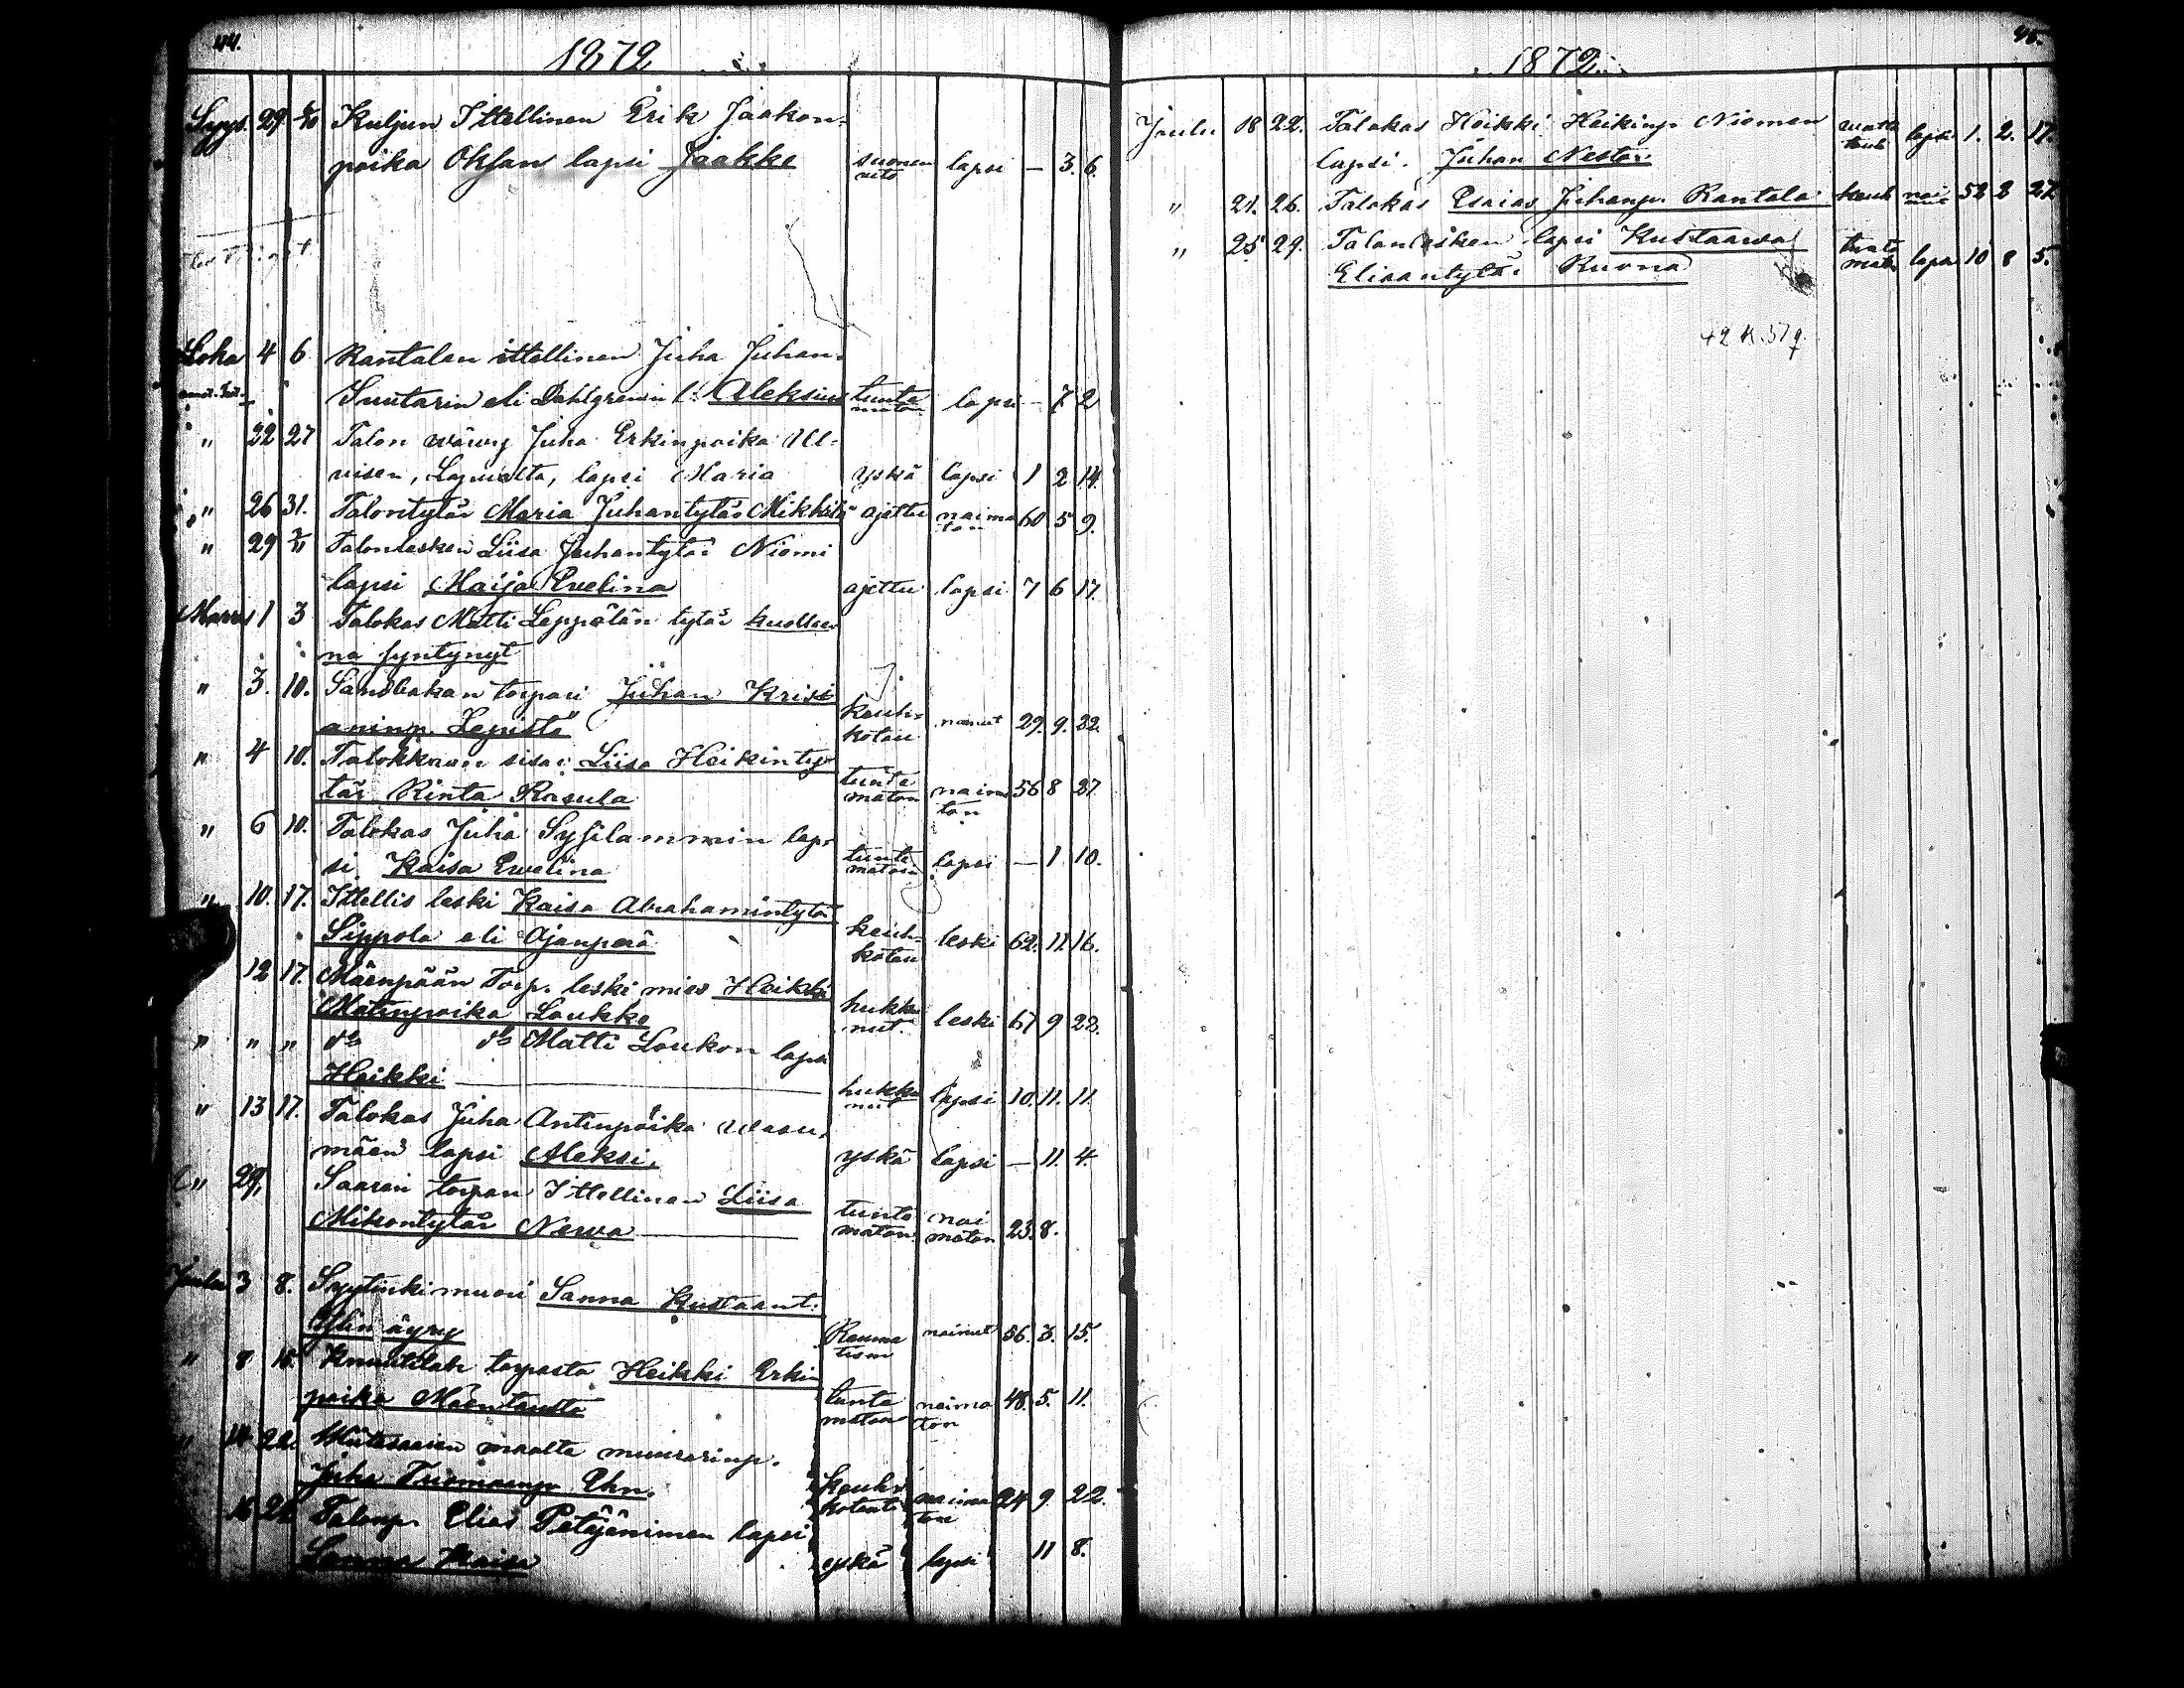 44.
1872
Syys. 29 Kuljun Ittellinen Erik Jaakon-
poika Oksans lapsi Jaakko suonen veto lapsi — 3. 6.
Loka 4 6 Rantalan ittellinen Juha Juhan.
Suutarin eli Dahlgrenin l. Aleksius tunte maton lapsi — 7 2
" 22 27 Talon wäwy Juha Erkinpoika
Lapualta, lapsi Maria yskä lapsi 1 2 14.
" 26 31. Talontytär Maria Juhantytär Mikkilä ajettu naima ton 60 5 9.
" 29 Talonlesken Liisa Juhantytär Niemi
lapsi Maija Evelina ajettu lapsi 7 6 17.
Marras 1 3 Talokas Matti Leppälän tytär kuollee
na syntynyt
" 3. 10. Sandbakan torpari Juhan Kristi
aninp. Lepistö keuh- kotau nainut 29. 9. 22.
" 4 10. Talokkaan sisar Liisa Heikinty-
tär Rinta Rasula tunte maton naima ton 56 8 27
" 6 10. Talokas Juha Sysilammin lap-
si Kaisa Ewelina tunte maton lapsi — 1 10.
" 10. 17. Ittellis leski Kaisa Abrahamintytär
Sippola eli Ajanperä keuh- kotau leski 62. 11 16.
12 17. Mäenpään Torp. leski mies Heikki
Matinpoika Loukko hukku nut. leski 67 9 22.
" " " do do Matti Loukon lapsi
Heikki hukku nut lapsi 10. 11. 11.
" 13 17. Talokas Juha Antinpoika
mäen lapsi Aleksi. yskä lapsi — 11. 4.
" 29, Saaren torpan Ittellinen Liisa
Mikontytär Newa tunte maton nai maton 23. 8.
Joulu 3 8. Syytinkimuori Sanna Kustaant.
Ylinäyry Reuma tism nainut 56. 3. 15.
" 8 15. Knuutilan torpasta Heikki Erkin
poika Mäentausta tunte maton naima ton 48. 5. 11.
" 14 22. maalta muurarinp.
Juha Tuomaanp Ehn. keuhko tauti naima ton 24 9 22.
16 22 Talonp. Elias Petäjäniemen lapsi
Sanna Kaisa yskä lapsi 11 8.
45.
1872
Joulu 18 22. Talokas Heikki Heikinp. Niemen
lapsi. Juhan Nestor. lapsi 1. 2. 17.
" 21. 26. Talokas Esaias Juhanp. Rantala keuh 52 2 27
" 25 29. Talonlesken lapsi Kustaawa
Eliaantytär Ruona tunte maton lapsi 10 8 5.